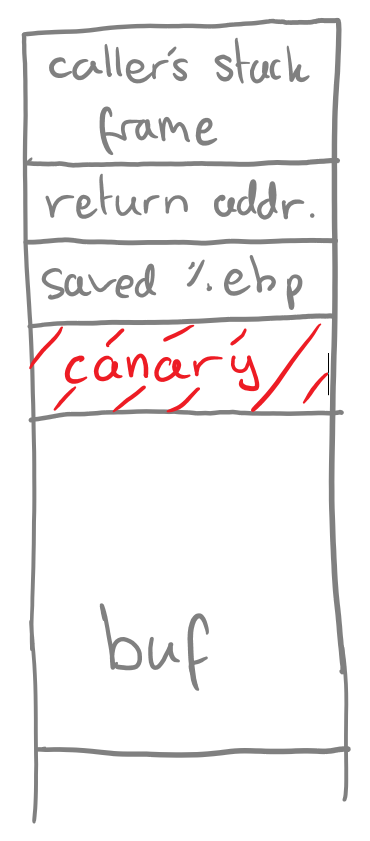 caller's stack
frame
return addr.
saved %.ebp
canary
buf